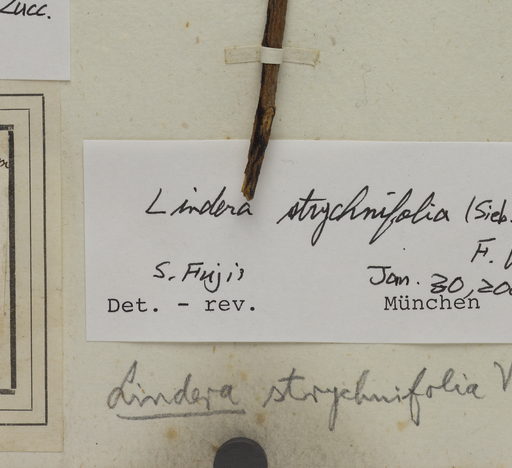 Zucc.
Lindera strychnifolia (Sieb.
F.
S. Fujii
Jan. 30, 200
Det. - rev. München
Lindera strychnifolia V